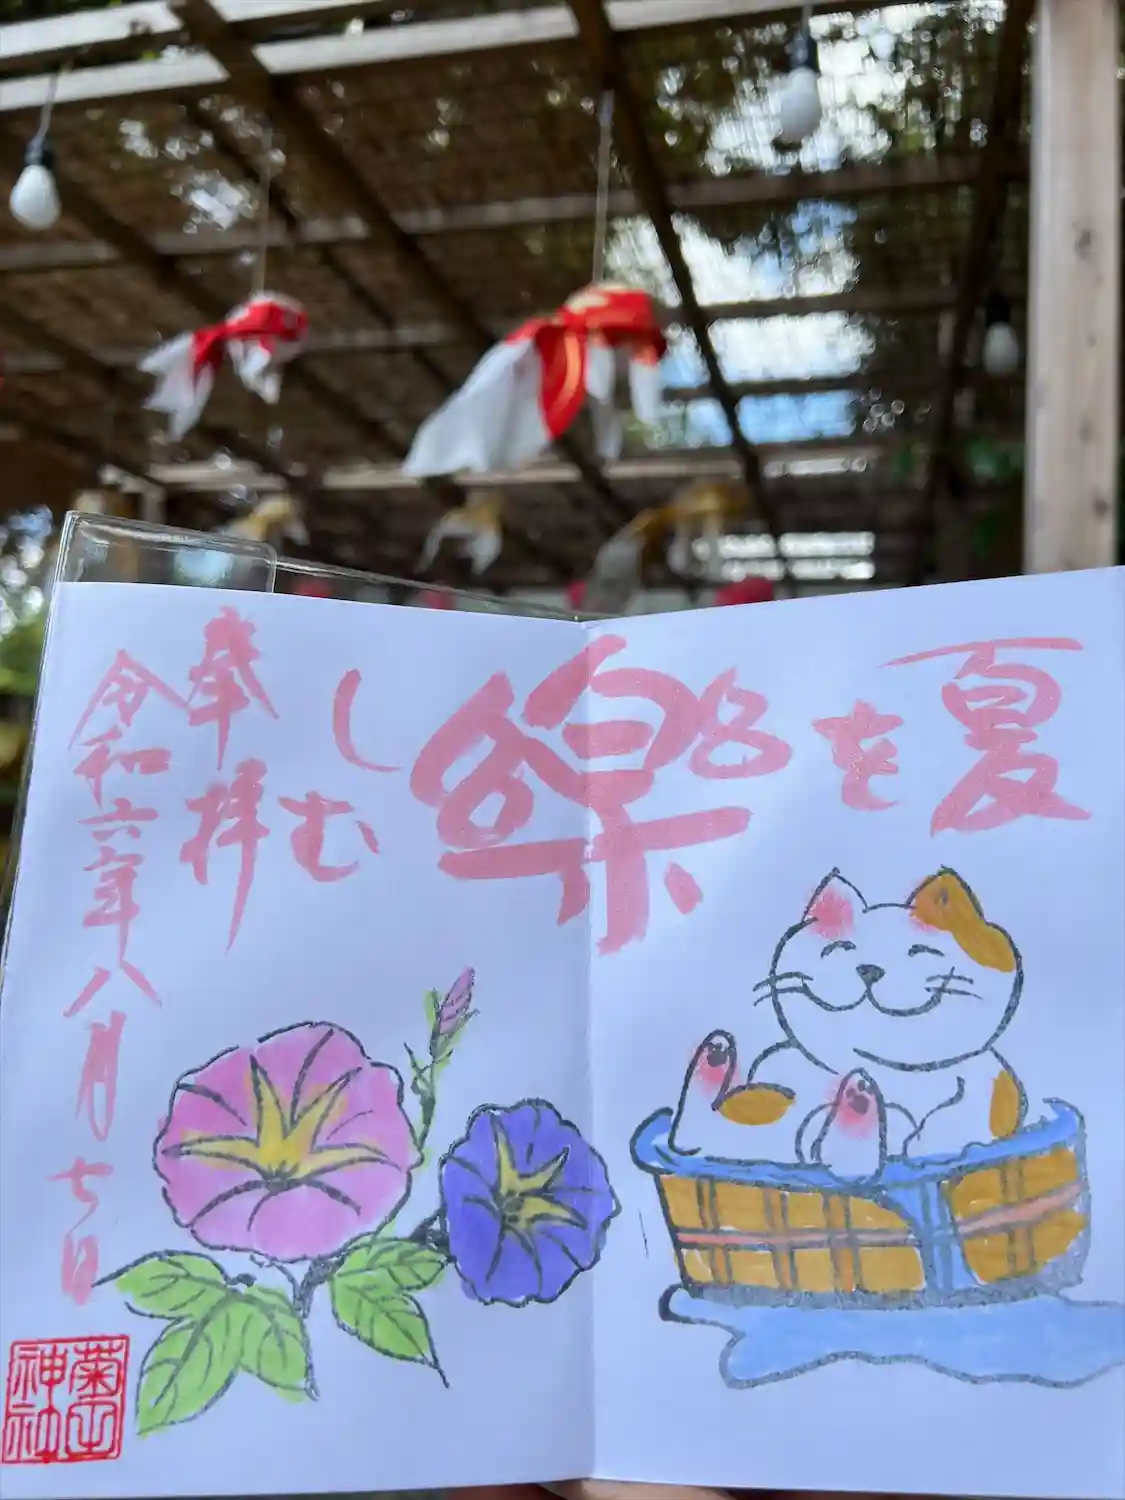 夏を樂しむ
奉拝
令和六年八月七日
菊田
神社